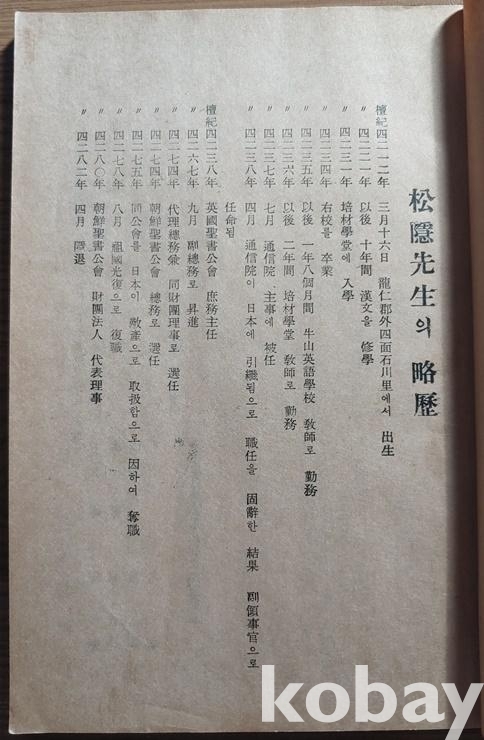 松隱先生의 略歷
檀紀四二一二年 三月十六日 龍仁郡外四面石川里에서 出生
〃 四二二一年 以後 十年間 漢文을 修學
〃 四二三一年 培材學堂에 入學
〃 四二三四年 右校를 卒業
〃 四二三五年 以後 一年八個月間 牛山英語學校 敎師로 勤務
〃 四二三六年 以後 二年間 培材學堂 敎師로 勤務
〃 四二三七年 七月 通信院 主事에 被任
〃 四二三八年 四月 通信院이 日本에 引繼됨으로 職任을 固辭한 結果 副領事官으로
任命됨
檀紀四二三八年 英國聖書公會 庶務主任
〃 四二六七年 九月 副總務로 昇進
〃 四二七四年 代理總務兼 同財團理事로 選任
〃 四二七四年 朝鮮聖書公會 總務로 選任
〃 四二七五年 同公會를 日本이 敵產으로 取扱함으로 因하여 奪職
〃 四二七八年 八月 祖國光復으로 復職
〃 四二八〇年 朝鮮聖書公會 財團法人 代表理事
〃 四二八二年 四月 隱退
kobay